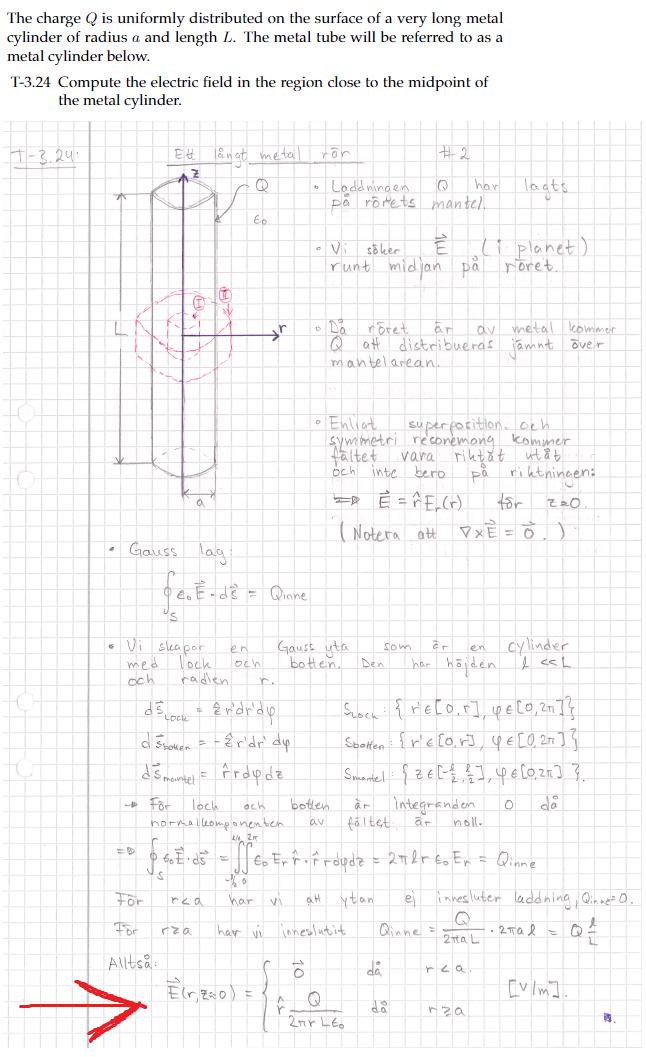 The charge Q is uniformly distributed on the surface of a very long metal
cylinder of radius a and length L. The metal tube will be referred to as a
metal cylinder below.
T-3.24 Compute the electric field in the region close to the midpoint of
the metal cylinder.
T-3.24: Ett långt metal rör #2
z
Q
ε₀
I II
r
L
a
• Laddningen Q har lagts
på rörets mantel.
• Vi söker E⃗ (i planet)
runt midjan på röret.
• Då röret är av metal kommer
Q att distribueras jämnt över
mantelarean.
• Enligt superposition och
symmetri resonemang kommer
fältet vara riktat utåt
och inte bero på riktningen:
⇒ E⃗ = r̂ Eᵣ(r) för z≈0.
(Notera att ∇×E⃗ = 0⃗.)
• Gauss lag:
∮_S ε₀E⃗·ds⃗ = Qinne
• Vi skapar en Gauss yta som är en cylinder
med lock och botten. Den har höjden l << L
och radien r.
ds⃗_Lock = ẑ r'dr'dφ S_Lock: { r'∈[0,r], φ∈[0,2π] }
ds⃗_botten = -ẑ r'dr'dφ S_botten: { r'∈[0,r], φ∈[0,2π] }
ds⃗_mantel = r̂ r dφ dz S_mantel: { z∈[-l/2, l/2], φ∈[0,2π] }.
→ För lock och botten är integranden 0 då
normalkomponenten av fältet är noll.
⇒ ∮_S ε₀E⃗·ds⃗ = ∫_{-l/2}^{l/2} ∫_0^{2π} ε₀ Eᵣ r̂ · r̂ r dφ dz = 2πl r ε₀ Eᵣ = Qinne
För r<a har vi att ytan ej innesluter laddning, Qinne=0.
För r≥a har vi inneslutit Qinne = Q/(2πaL) · 2πal = Q l/L
Alltså:
E⃗(r,z≈0) = { 0⃗ då r<a.
r̂ Q/(2πrLε₀) då r≥a [V/m].